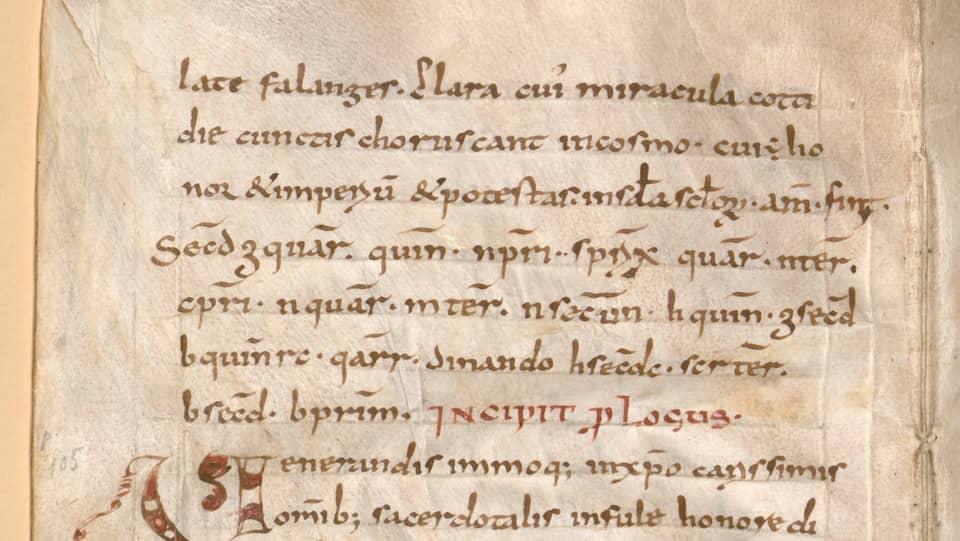 late falanges. Clara cui' miracula cotti
die cunctis choruscant incosmo. cui ho
nor & imperiū & potestas. insclā sclōꝝ. am̄. finɀ.
Secd̄ ꝫ quār. quin̄. n pr̄i. quār. n ter̄.
c pr̄i. n quār. m ter̄. n secūn. h quin̄. ꝫ secd̄
b quin̄ rc. qārr. dinando h secd̄c. scr ter̄.
b secd̄. b prim̄. INCIPIT p̱LOGUS.
Venerandis immoq; inxp̄o carissimis
omīb; sacerdotalis infule honore di
105